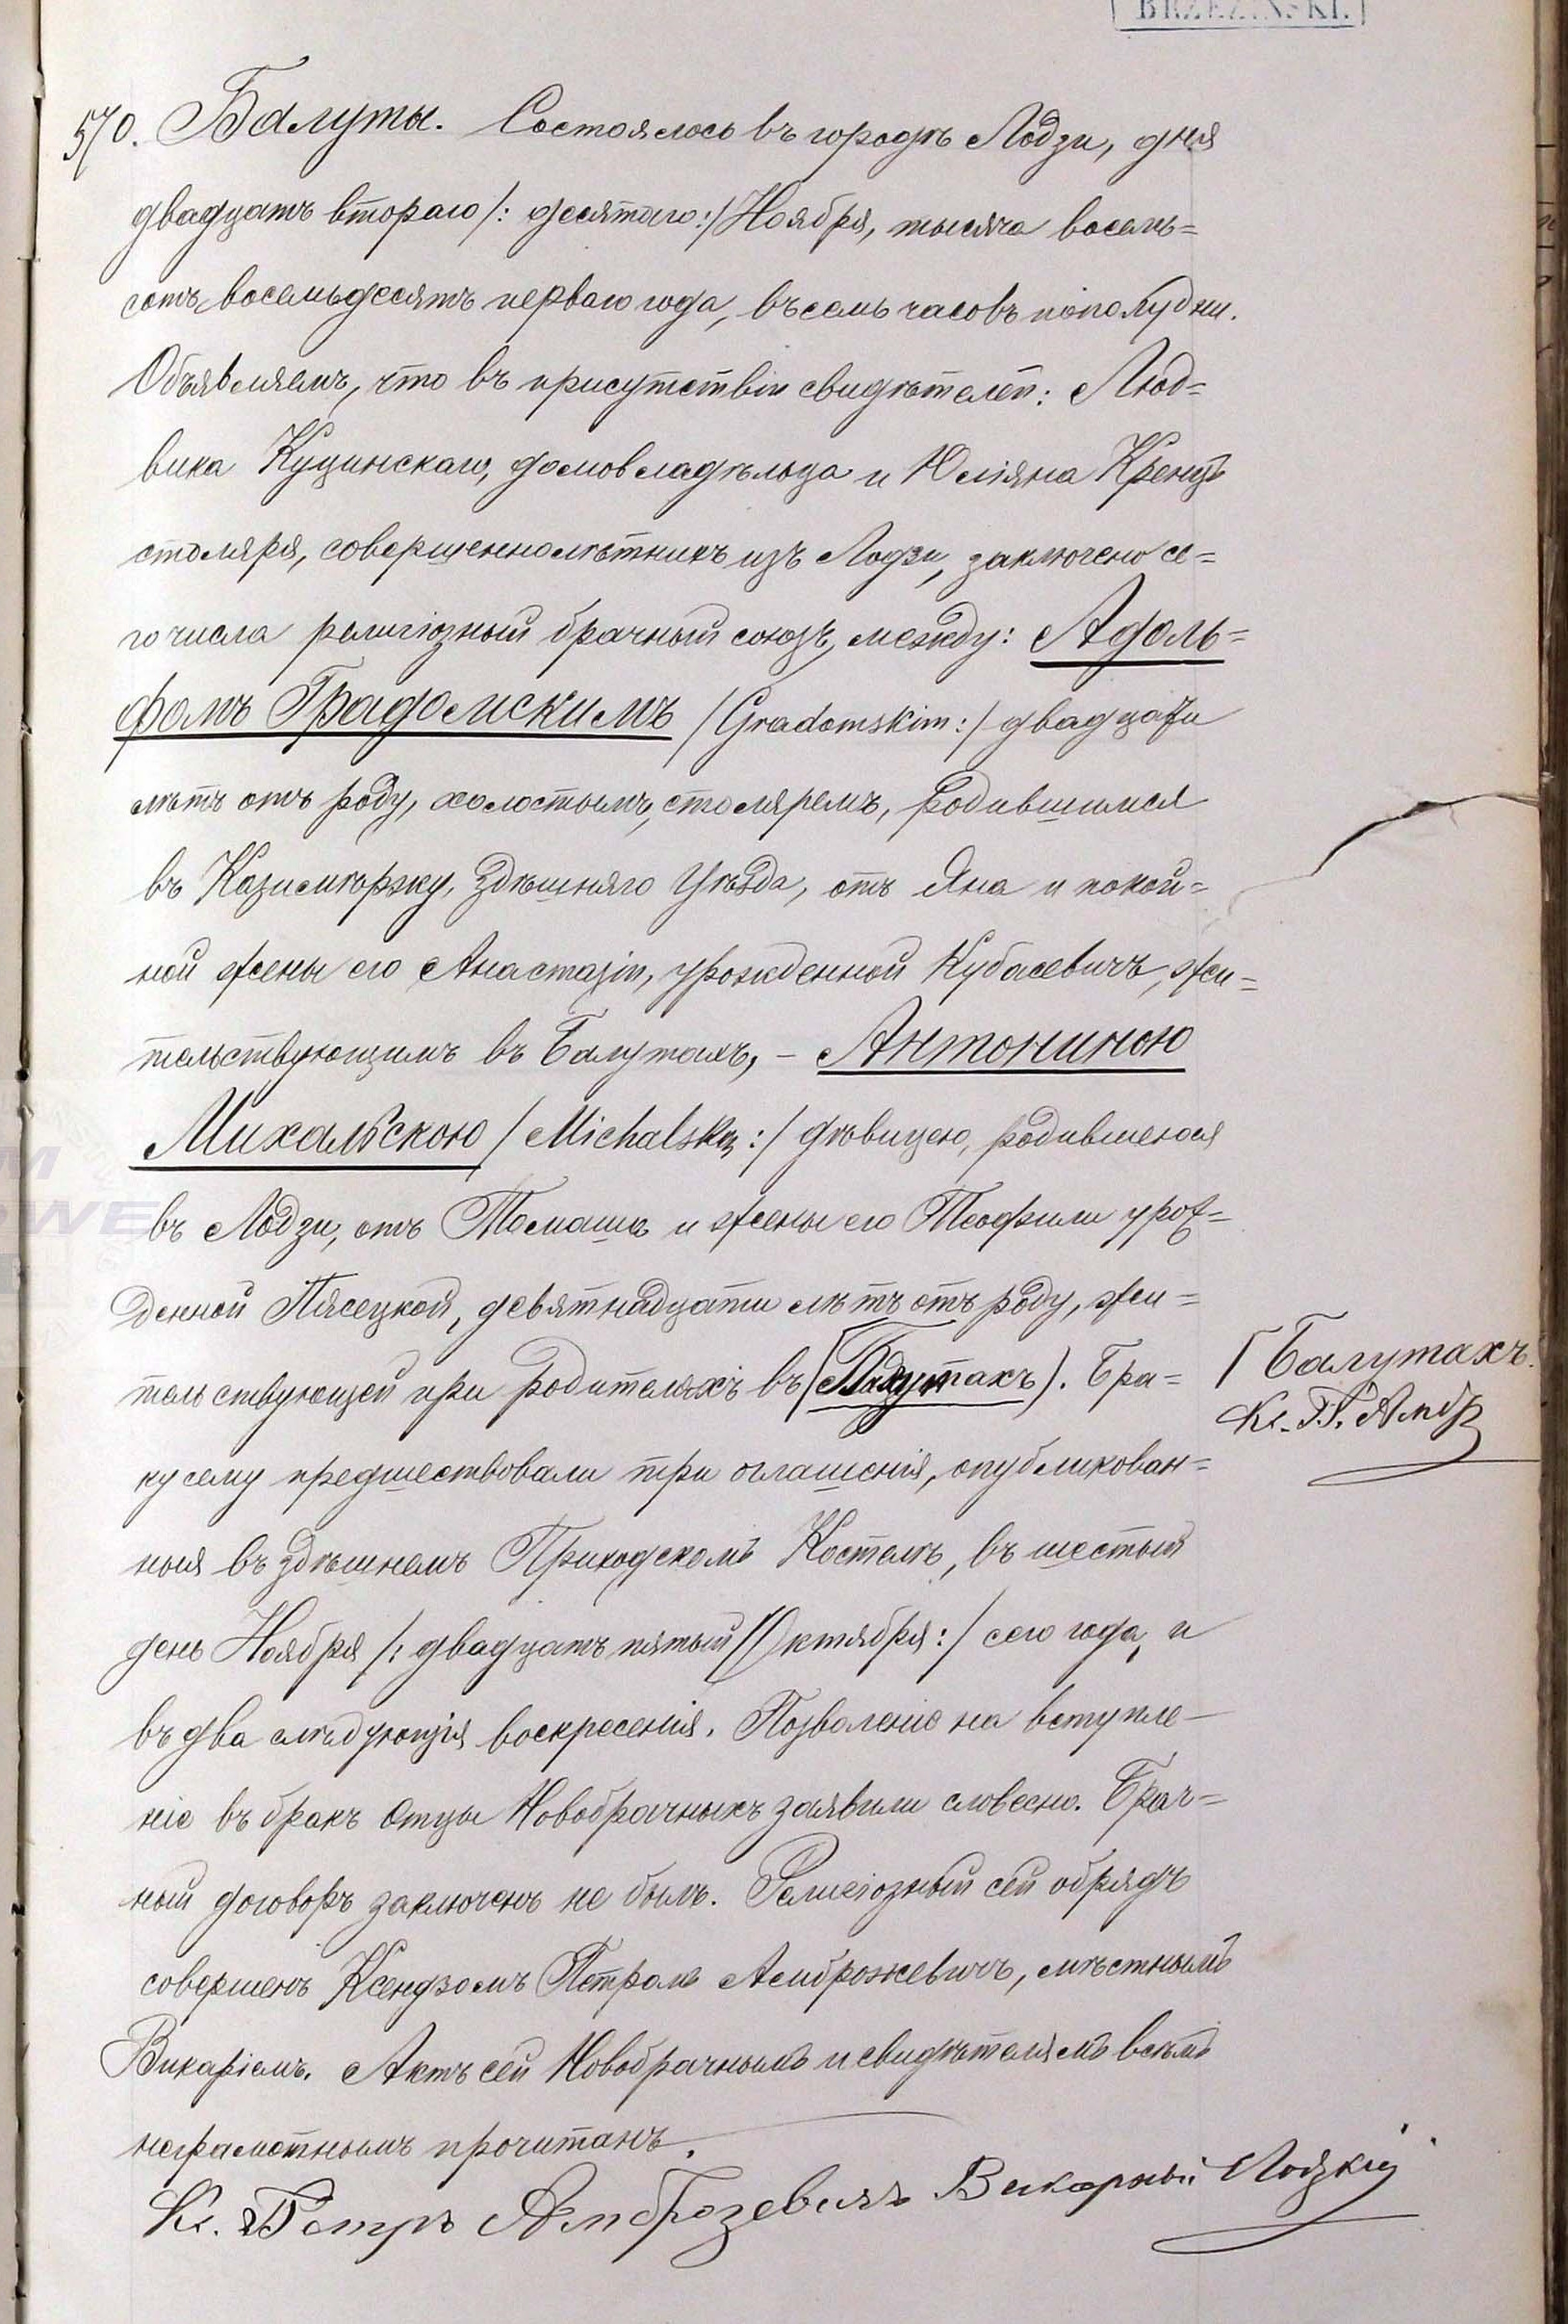 BRZEZIŃSKI.
570. Балуты. Состоялось въ городѣ Лодзи, дня
двадцать втораго /: десятаго :/ Ноября, тысяча восемь=
сотъ восемьдесятъ перваго года, въ семь часовъ пополудни.
Объявляемъ, что въ присутствіи свидѣтелей: Люд=
вика Куцинскаго, домовладѣльца и Юліяна Кренцъ
столяря, совершеннолѣтнихъ изъ Лодзи, заключено се=
го числа религіозный брачный союзъ, между: Адоль=
фомъ Градомскимъ /Gradomskim:/ двадцати
лѣтъ отъ роду, холостымъ, столяремъ, родившимся
въ Казимѣржу, здѣшняго Уѣзда, отъ Яна и покой=
ной жены его Анастазіи, урожденной Кубасевичъ, жи=
тельствующимъ въ Балутахъ, – Антониною
Михальскою /Michalską:/ дѣвицею, родившеюся
въ Лодзи, отъ Томаша и жены его Теофили урож=
денной Пясецкой, девятнадцати лѣтъ отъ роду, жи=
тельствующей при родителяхъ въ (Балутахъ). Бра=
Г Балутахъ.
Кс. П. Амбр
ку сему предшествовали три оглашенія, опубликован=
ныя въ здѣшнемъ Приходскомъ Костелѣ, въ шестый
день Ноября /: двадцать пятый Октября :/ сего года, и
въ два слѣдующія воскресенія. Позволеніе на вступле–
ніе въ бракъ Отцы Новобрачныхъ заявили словесно. Брач=
ный договоръ заключенъ не былъ. Религіозный сей обрядъ
совершенъ Ксендзомъ Петромъ Амброжевичъ, мѣстнымъ
Викаріемъ. Актъ сей Новобрачнымъ и свидѣтелямъ всѣмъ
неграмотнымъ прочитанъ.
Кс. Петръ Амброзевичъ Викарный Лодзкій